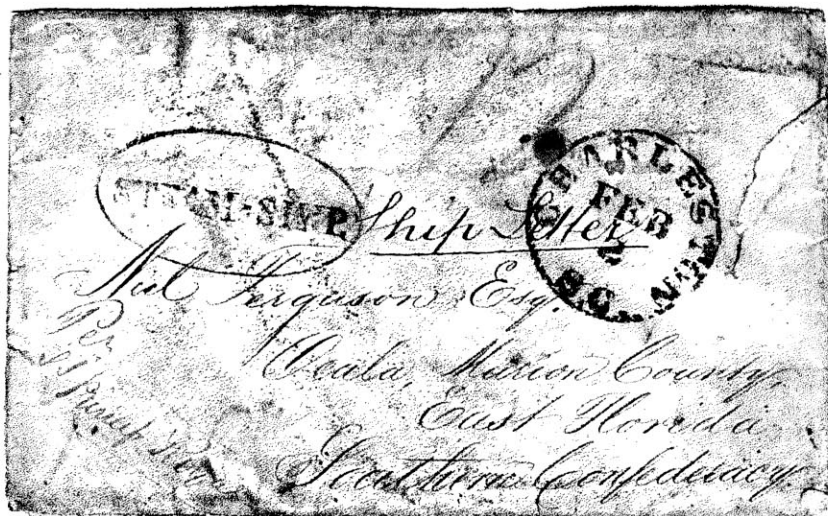 12
STEAM-SHIP.
Ship Letter
CHARLESTON S.C.
FEB
2
Neil Ferguson Esq.
Ocala, Marion County,
East Florida
Southern Confederacy.
Per